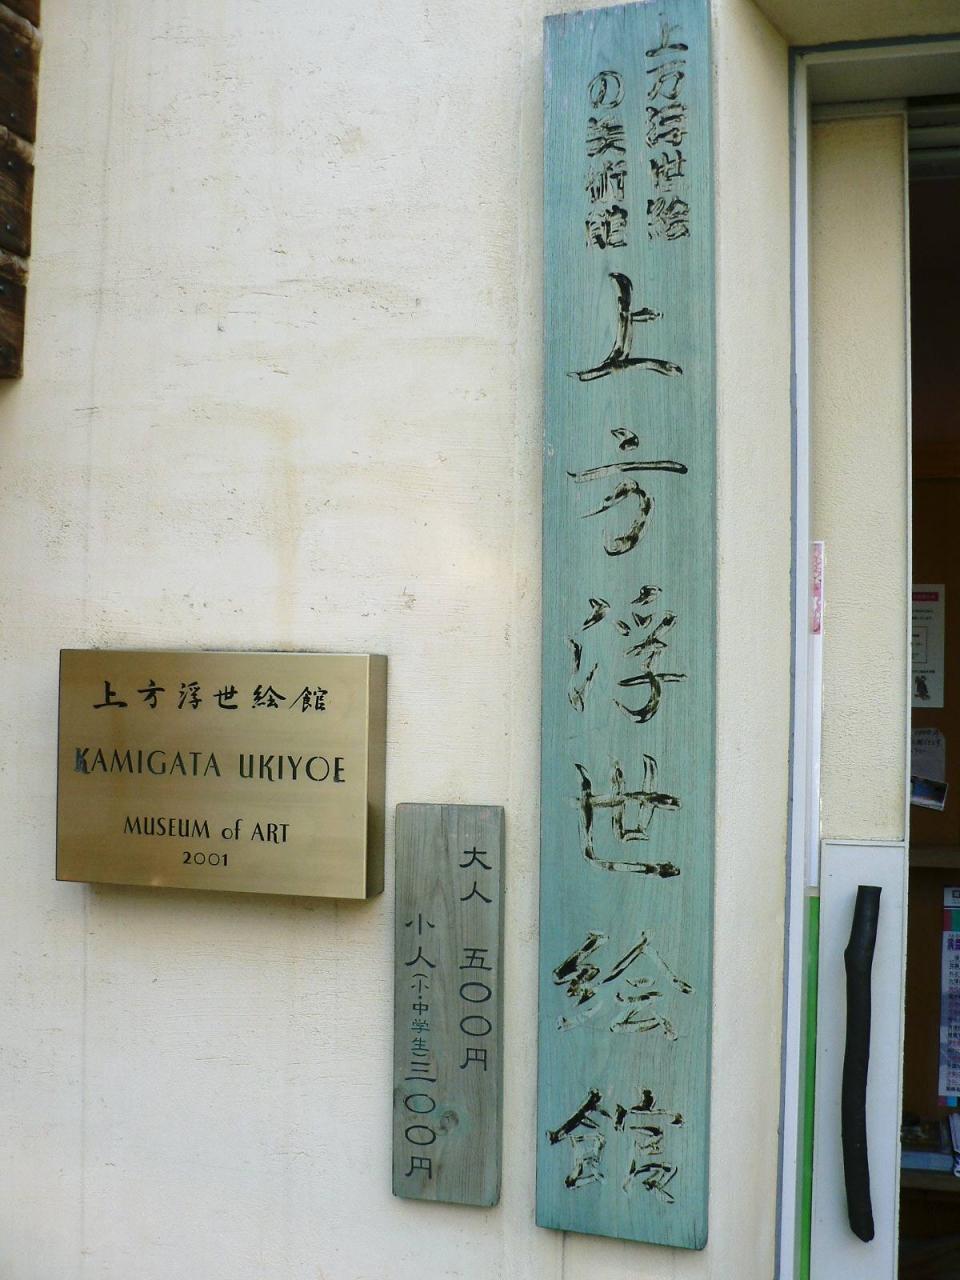 上方浮世絵
の美術館
上方浮世絵館
上方浮世絵館
KAMIGATA UKIYOE
MUSEUM of ART
2001
大人 五〇〇円
小人(小・中学生)三〇〇円